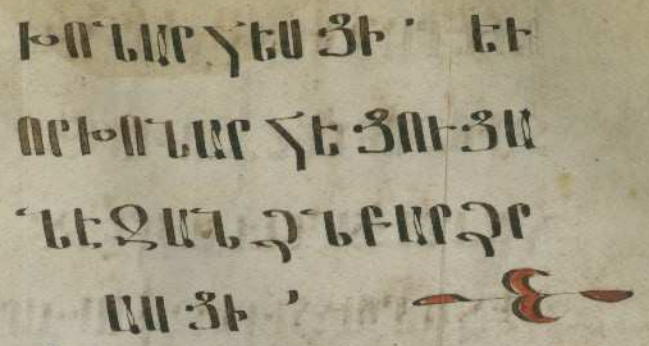 ԽՈՆԱՐՀԵՍՑԻ՛ ԵՒ
ՈՐԽՈՆԱՐՀԵՑՈՒՑԱ
ՆԷԶԱՆՁՆԲԱՐՁՐ
ԱՍՑԻ՛